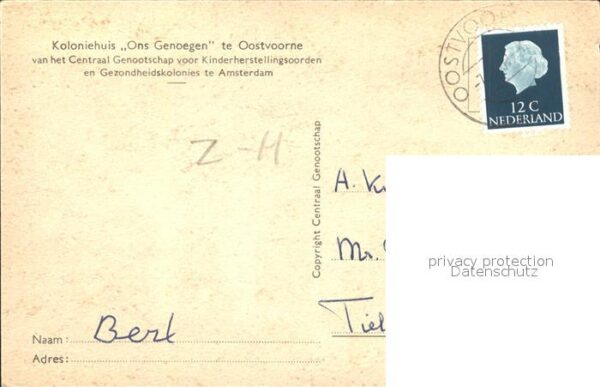 Koloniehuis „Ons Genoegen" te Oostvoorne
van het Centraal Genootschap voor Kinderherstellingsoorden
en Gezondheidskolonies te Amsterdam
OOSTVOO
12 C
NEDERLAND
Z-H
Copyright Centraal Genootschap
A.
Mr.
Tiel
privacy protection
Datenschutz
Naam: Bert
Adres: